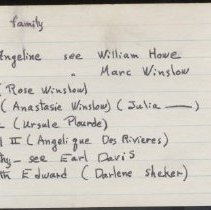 Family
Angeline see William Howe
" Marc Winslow
(Rose Winslow)
(Anastasie Winslow) (Julia ——)
(Ursule Plourde)
II (Angelique Des Rivieres)
see Earl Davis
Edward (Darlene Sheker)